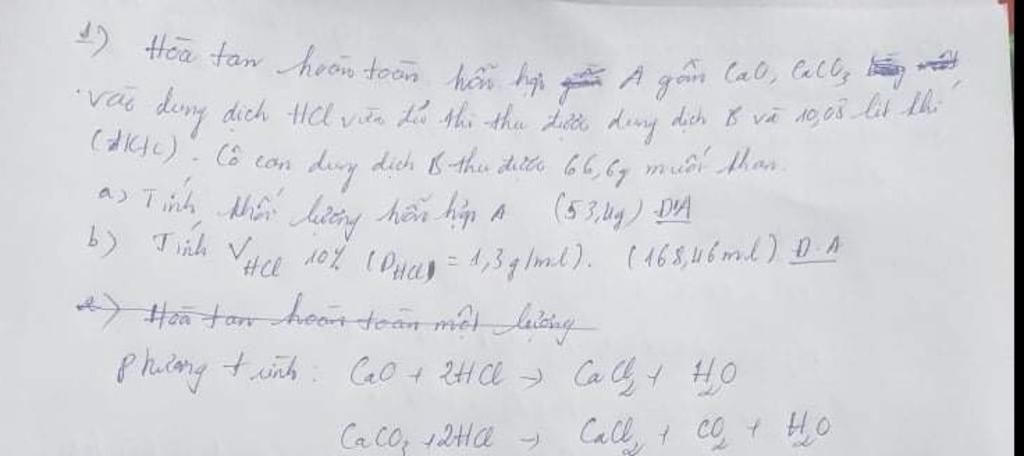 1) Hòa tan hoàn toàn hỗn hợp A gồm CaO, CaCO3
vào dung dịch HCl vừa đủ thì thu được dung dịch B và 10,08 lít khí
(đktc). Cô cạn dung dịch B thu được 66,6g muối khan.
a) Tính khối lượng hỗn hợp A (53,4g) ĐA
b) Tính VHCl 10% (DHCl = 1,3g/ml). (168,46ml) Đ.A
Hòa tan hoàn toàn một lượng
Phương trình: CaO + 2HCl → CaCl2 + H2O
CaCO3 + 2HCl → CaCl2 + CO2 + H2O